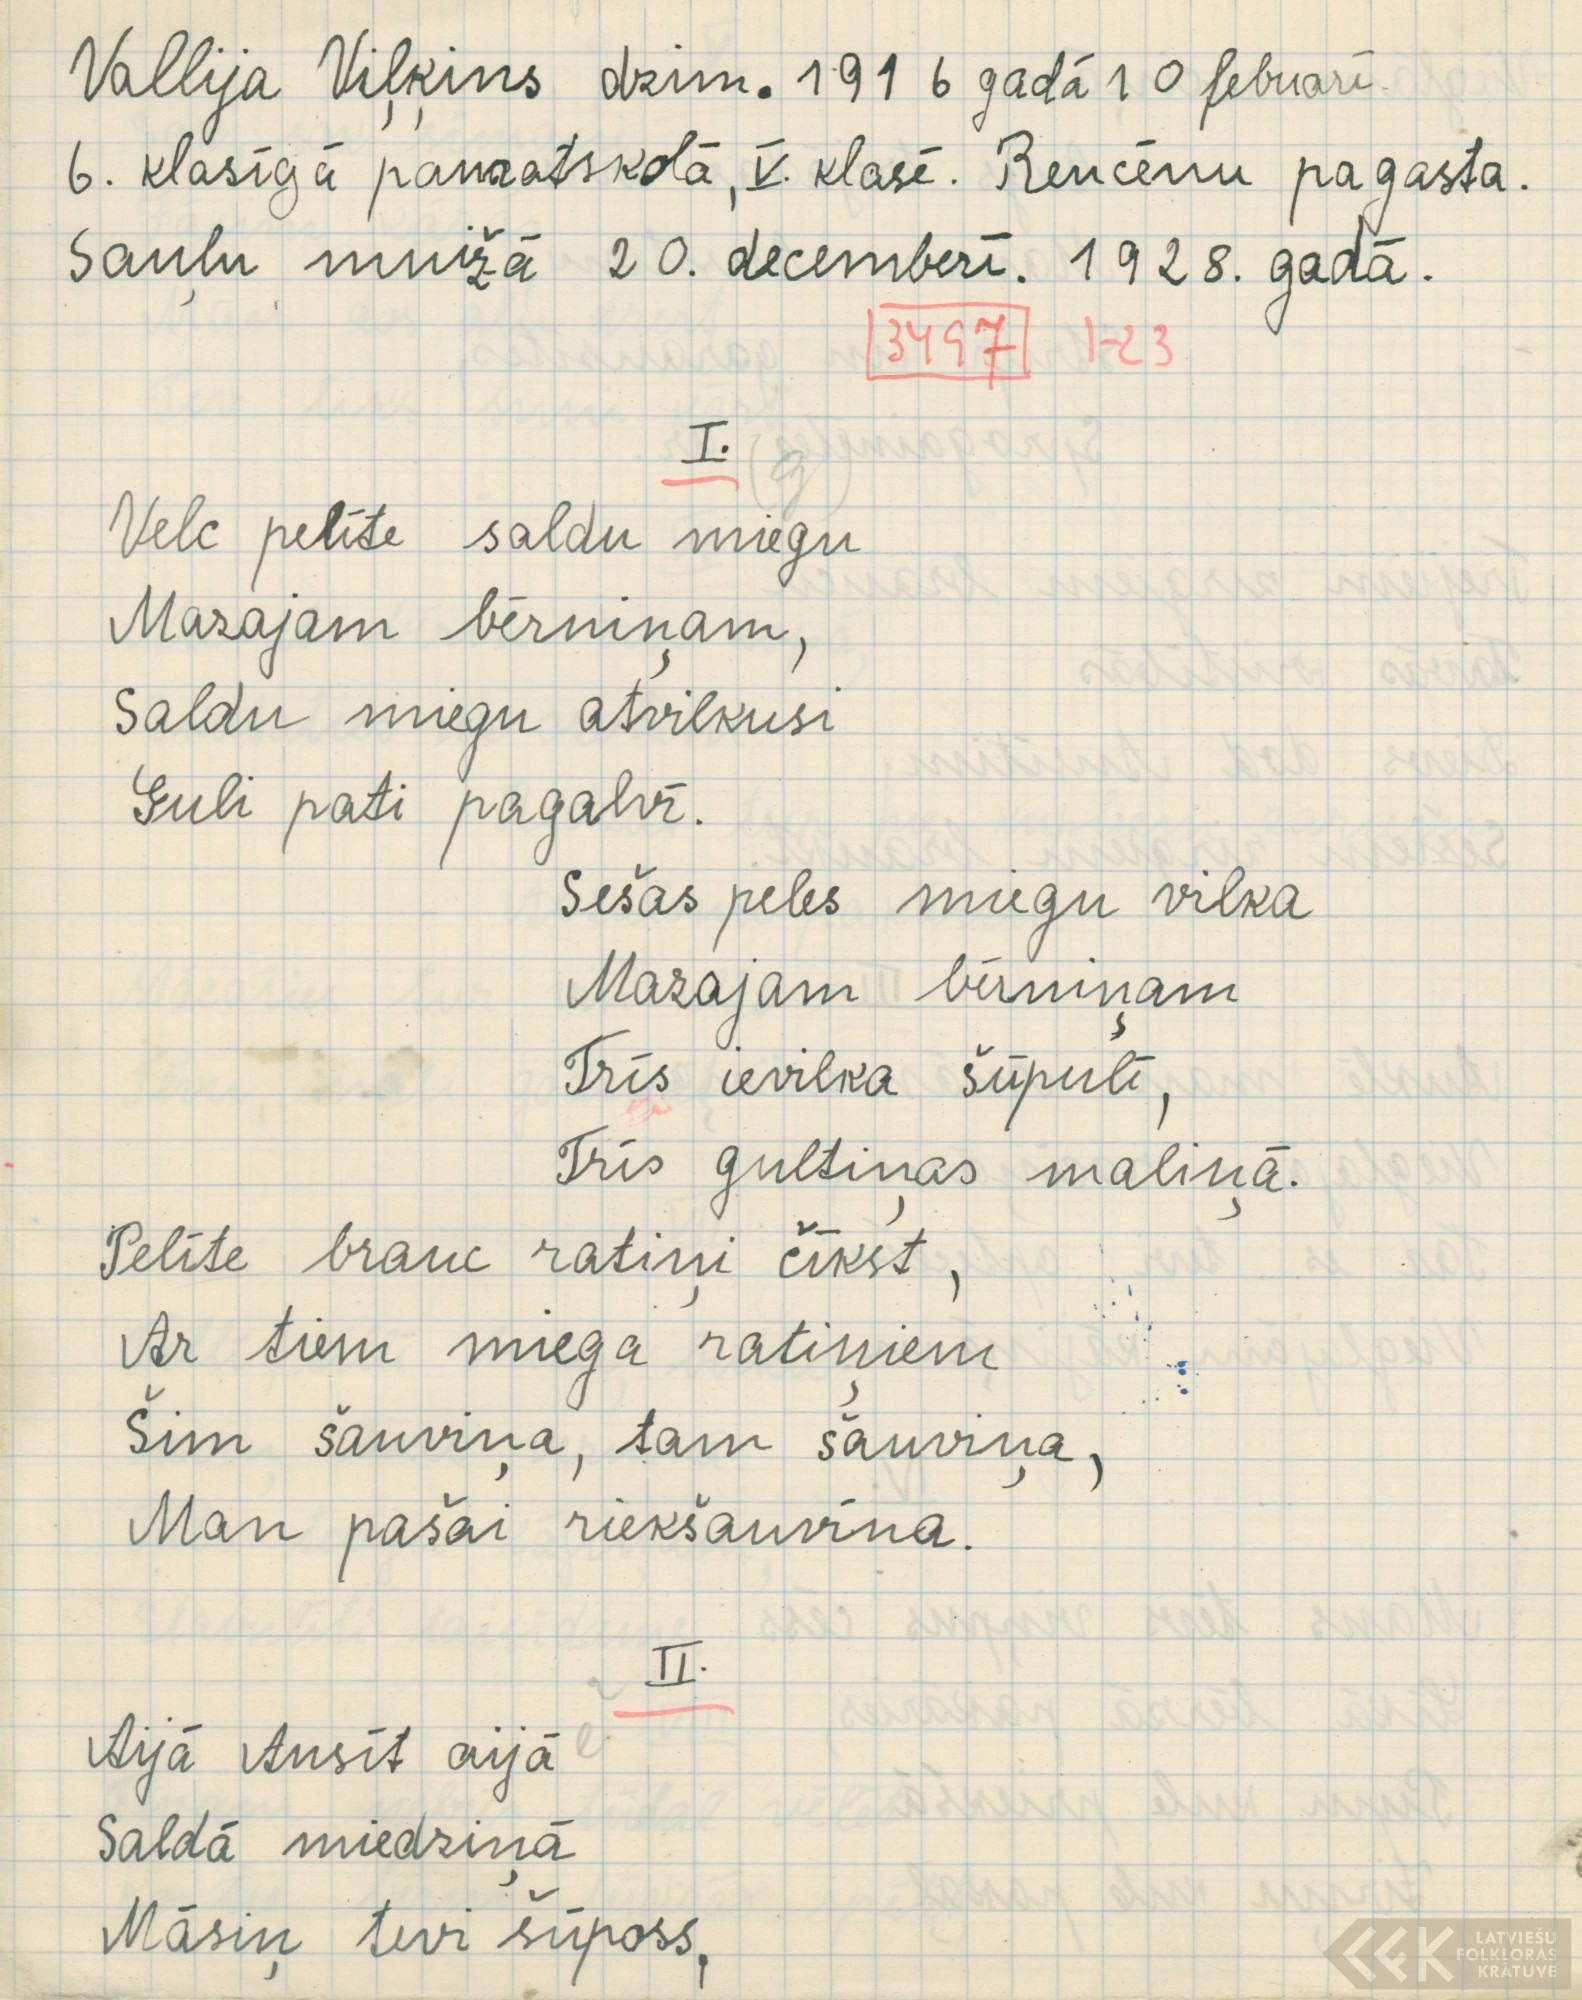 Vallija Viļķins dzim. 1916 gadā 10 februarī.
6. klasīgā pamatskolā, V. klasē. Rencēnu pagasta.
Sauļu muižā 20. decemberī. 1928. gadā.
3497 1-23
I.
(g)
Velc pelīte saldu miegu
Mazajam bērniņam,
Saldu miegu atvilkusi
Guli pati pagalvī.
Sešas peles miegu vilka
Mazajam bērniņam
Trīs ievilka šūpulī,
Trīs gultiņas maliņā.
Pelīte brauc ratiņi čīkst,
Ar tiem miega ratiņiem
Šim šauviņa, tam šauviņa,
Man pašai riekšauvina.
II.
Aijā Ansīt aijā
Saldā miedziņā
Māsiņ tevi šūposs,
LATVIEŠU
FOLKLORAS
KRĀTUVE